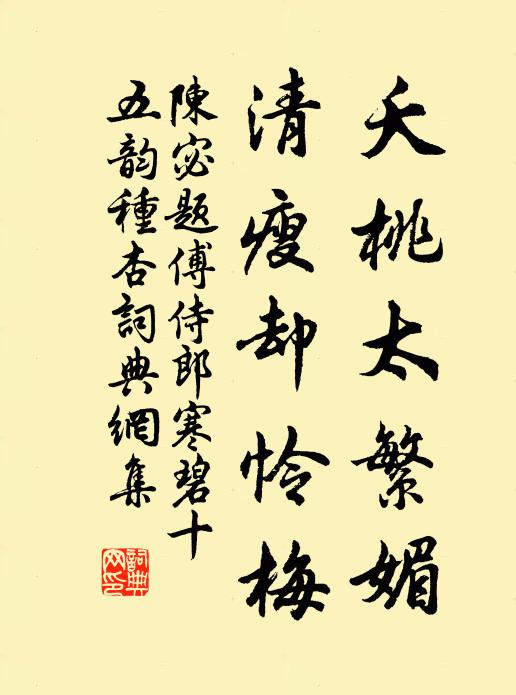 夭桃太繁媚
清瘦却怜梅
陳宓题傅侍郎寒碧十
五韵種杏詞典網集
詞典
网印